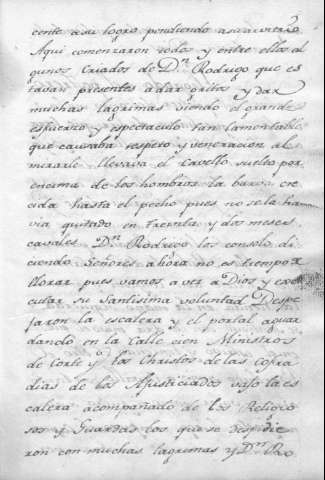 cente a su logro pendiendo
Aqui comenzaron todos y entre ellos al
gunos Criados de Dn Rodrigo que es
taban presentes a dar gritos y dar
muchas lagrimas viendo el grande
esfuerzo y espectaculo tan lamentable
que causaba respeto y veneracion al
mirarle llevava el Cavello suelto por
encima de los hombros la barva cre
cida hasta el pecho pues no se la ha
via quitado en treinta y dos meses
cavales. Dn Rodrigo los consolo di
ciendo Señores ahora no es tiempo a
llorar pues vamos a ver a Dios y exe
cutar su Santisima voluntad Despe
jaron la escalera y el portal aguar
dandolo en la Calle cien Ministros
de Corte y los Christos de las Cofra
dias de los Ajusticiados vajo la es
calera acompañado de los Religio
sos y Guardas los que se despidie
ron con muchas lagrimas y Dn Ro